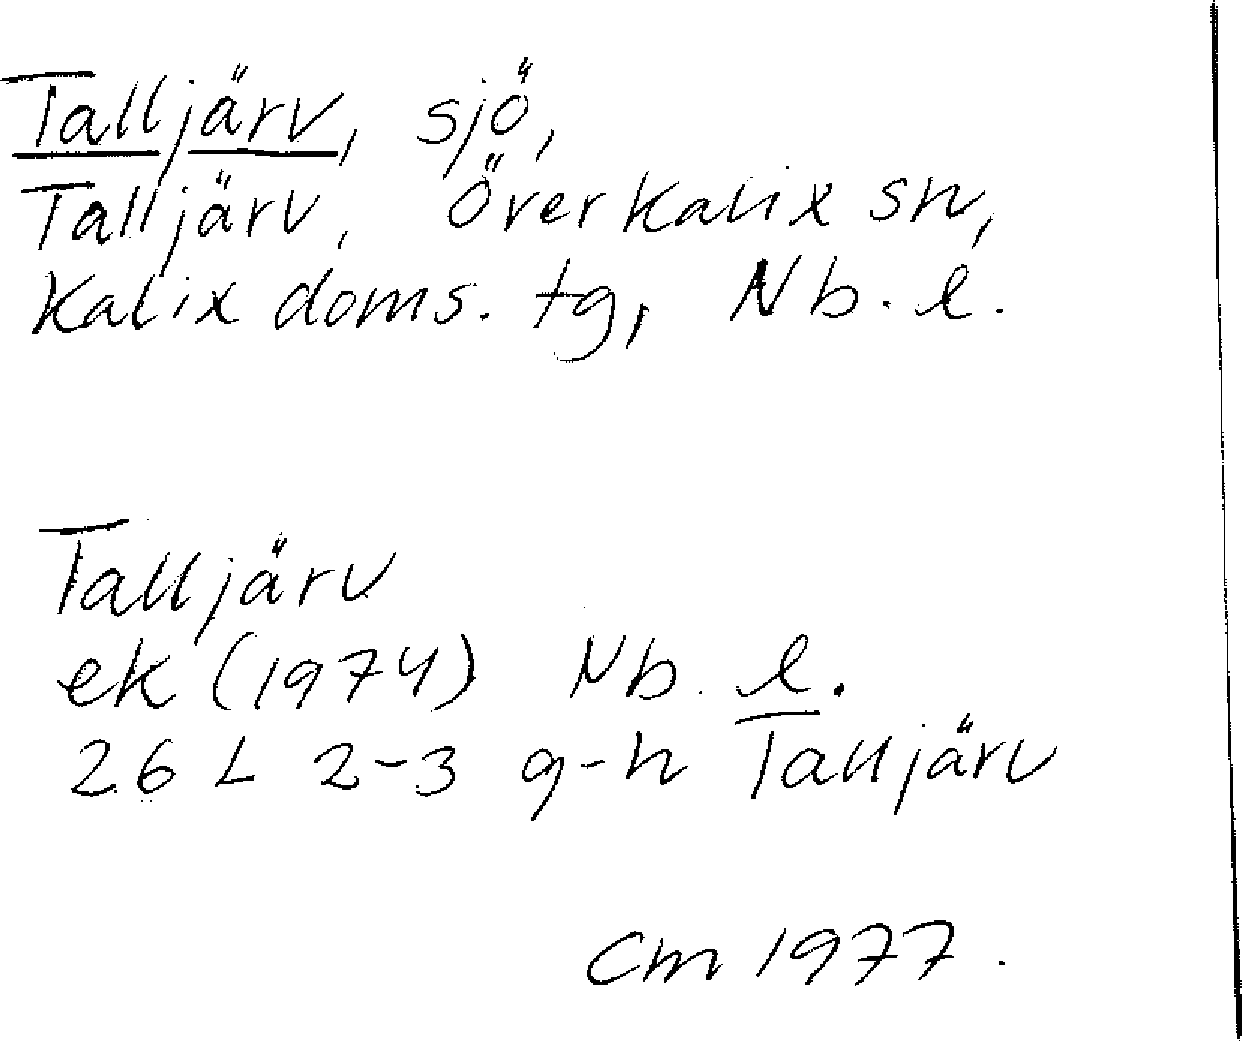 Talljärv, sjö,
Talljärv, Överkalix sn,
Kalix doms. tg, Nb. l.
Talljärv
ek (1974) Nb. l.
26 L 2-3 g-h Talljärv
Cm 1977.